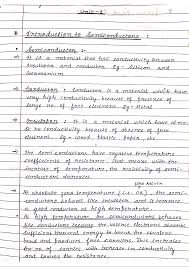 Unit-1
Introduction to Semiconductors :
Semiconductor :
It is a material that has conductivity between
insulator and conductor. Eg - Silicon and
Germanium
Conductor : Conductor is a material which have
very high conductivity because of presence of
large no. of free electrons. Eg - Metal
Insulator : It is a material which have almost
no conductivity because of absence of free
electrons. Eg - wood, plastic, paper, etc.
The semiconductors have negative temperature
coefficients of resistance. That means with the
increase of temperature, the resistivity of semi-
conductors decreases.
At absolute zero temperature (i.e. 0K), the semi-
conductors behaves like insulator and it becomes
a good conductor at high temperature.
At high temperature, the semiconductors behaves
like conductor because the valence electrons
sufficient thermal energy to break the covalent
bond and produces free electrons. This increases
the no. of carriers with increase in conductivity
and lowers the resistance.